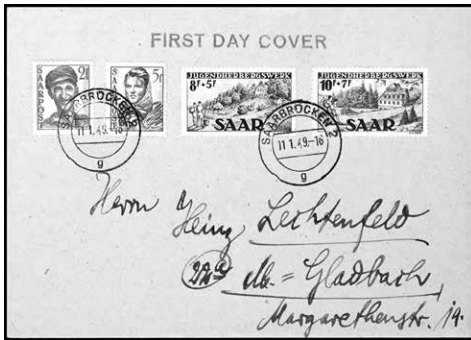 FIRST DAY COVER
SAARPOST 2F
SAARPOST 5F
JUGENDHERBERGSWERK
8F+5F
SAAR
JUGENDHERBERGSWERK
10F+7F
SAAR
SAARBRÜCKEN 2
11.1.49.-16
g
SAARBRÜCKEN 2
11.1.49.-16
g
Herrn
Heinz Lechtenfeld
22a M.=Gladbach,
Margarethenstr. 14.